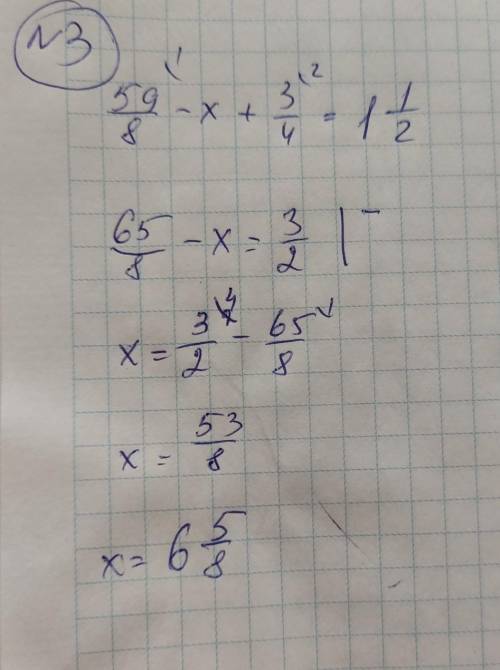 №3
59/8 \1 - x + 3/4 \2 = 1 1/2
65/8 - x = 3/2 | -
x = 3/2 \4 - 65/8 \1
x = 53/8
x = 6 5/8